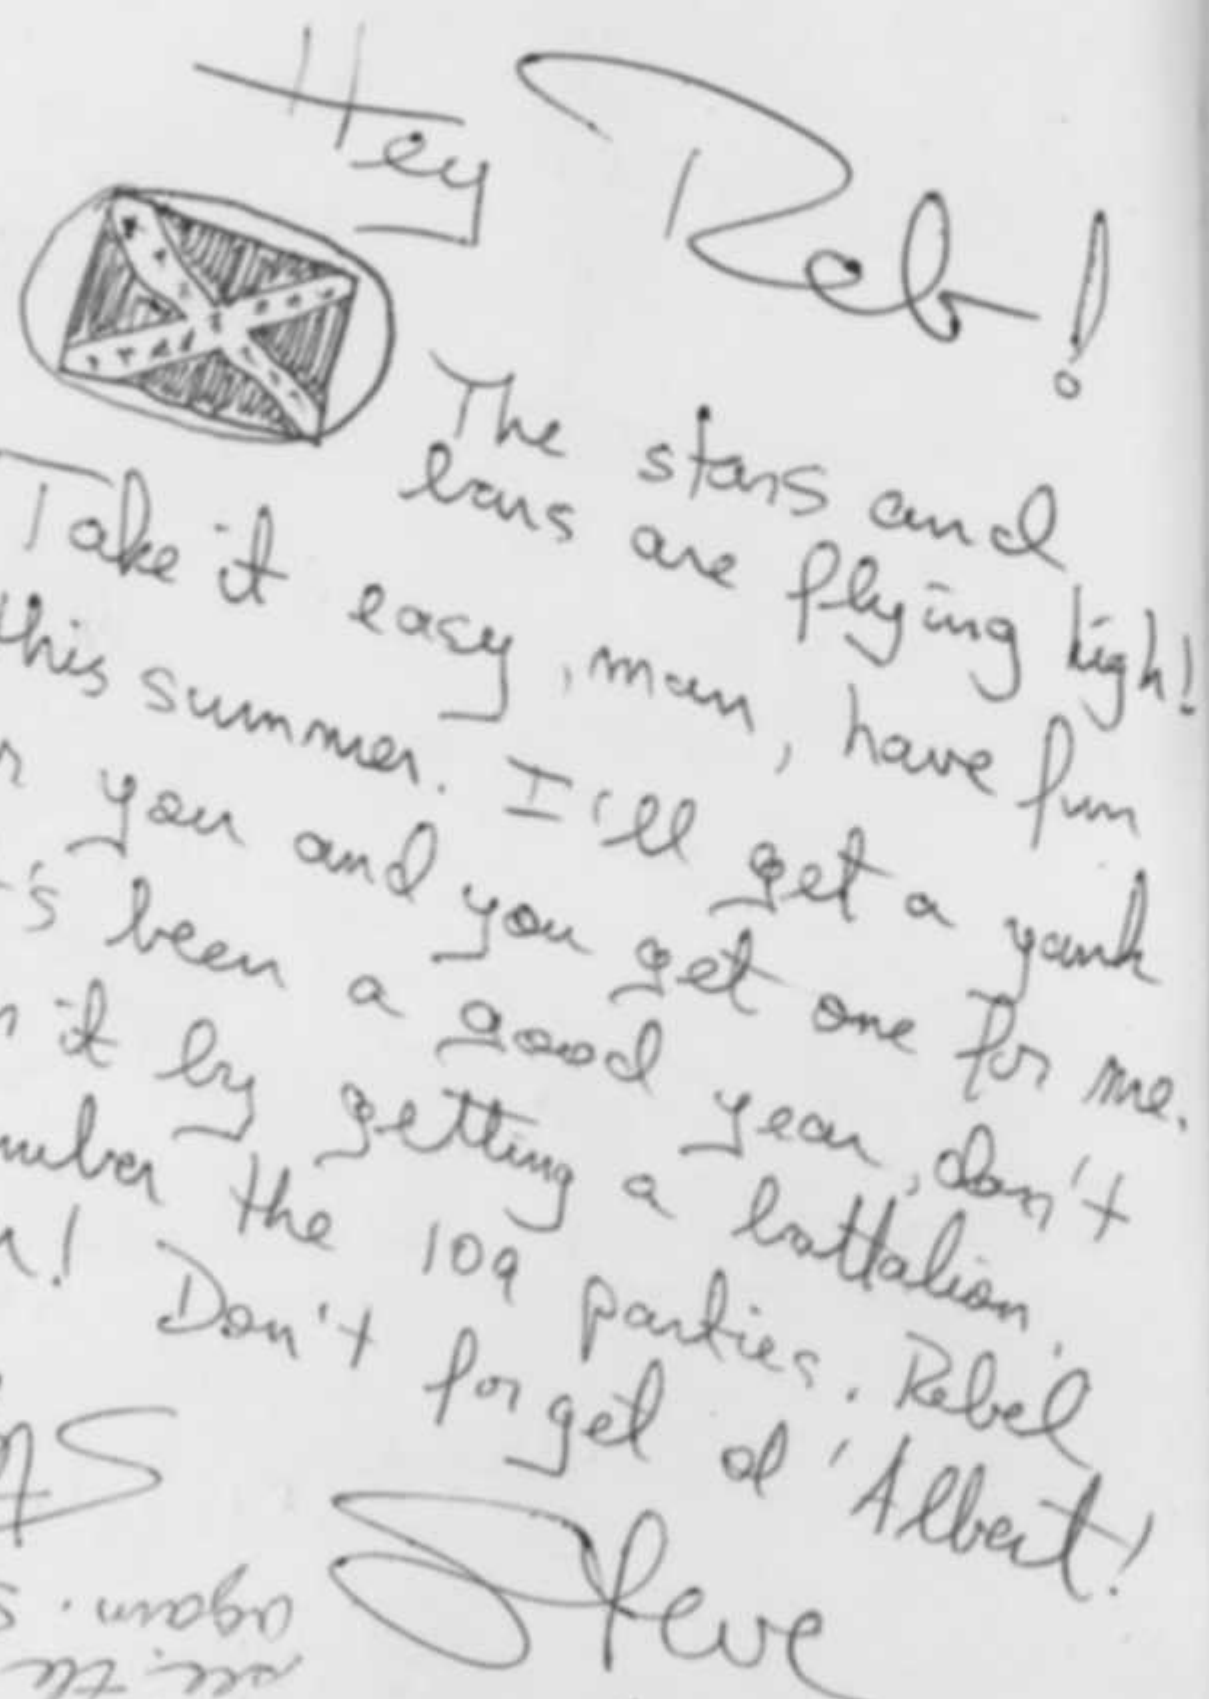 Hey Reb!
The stars and
bars are flying high!
Take it easy, man, have fun
this summer. I'll get a yank
you and you get one for me.
's been a good year, don't
it by getting a battalion.
mber the 109 parties. Rebel
! Don't forget ol' Albert!
Steve
again. s
see the